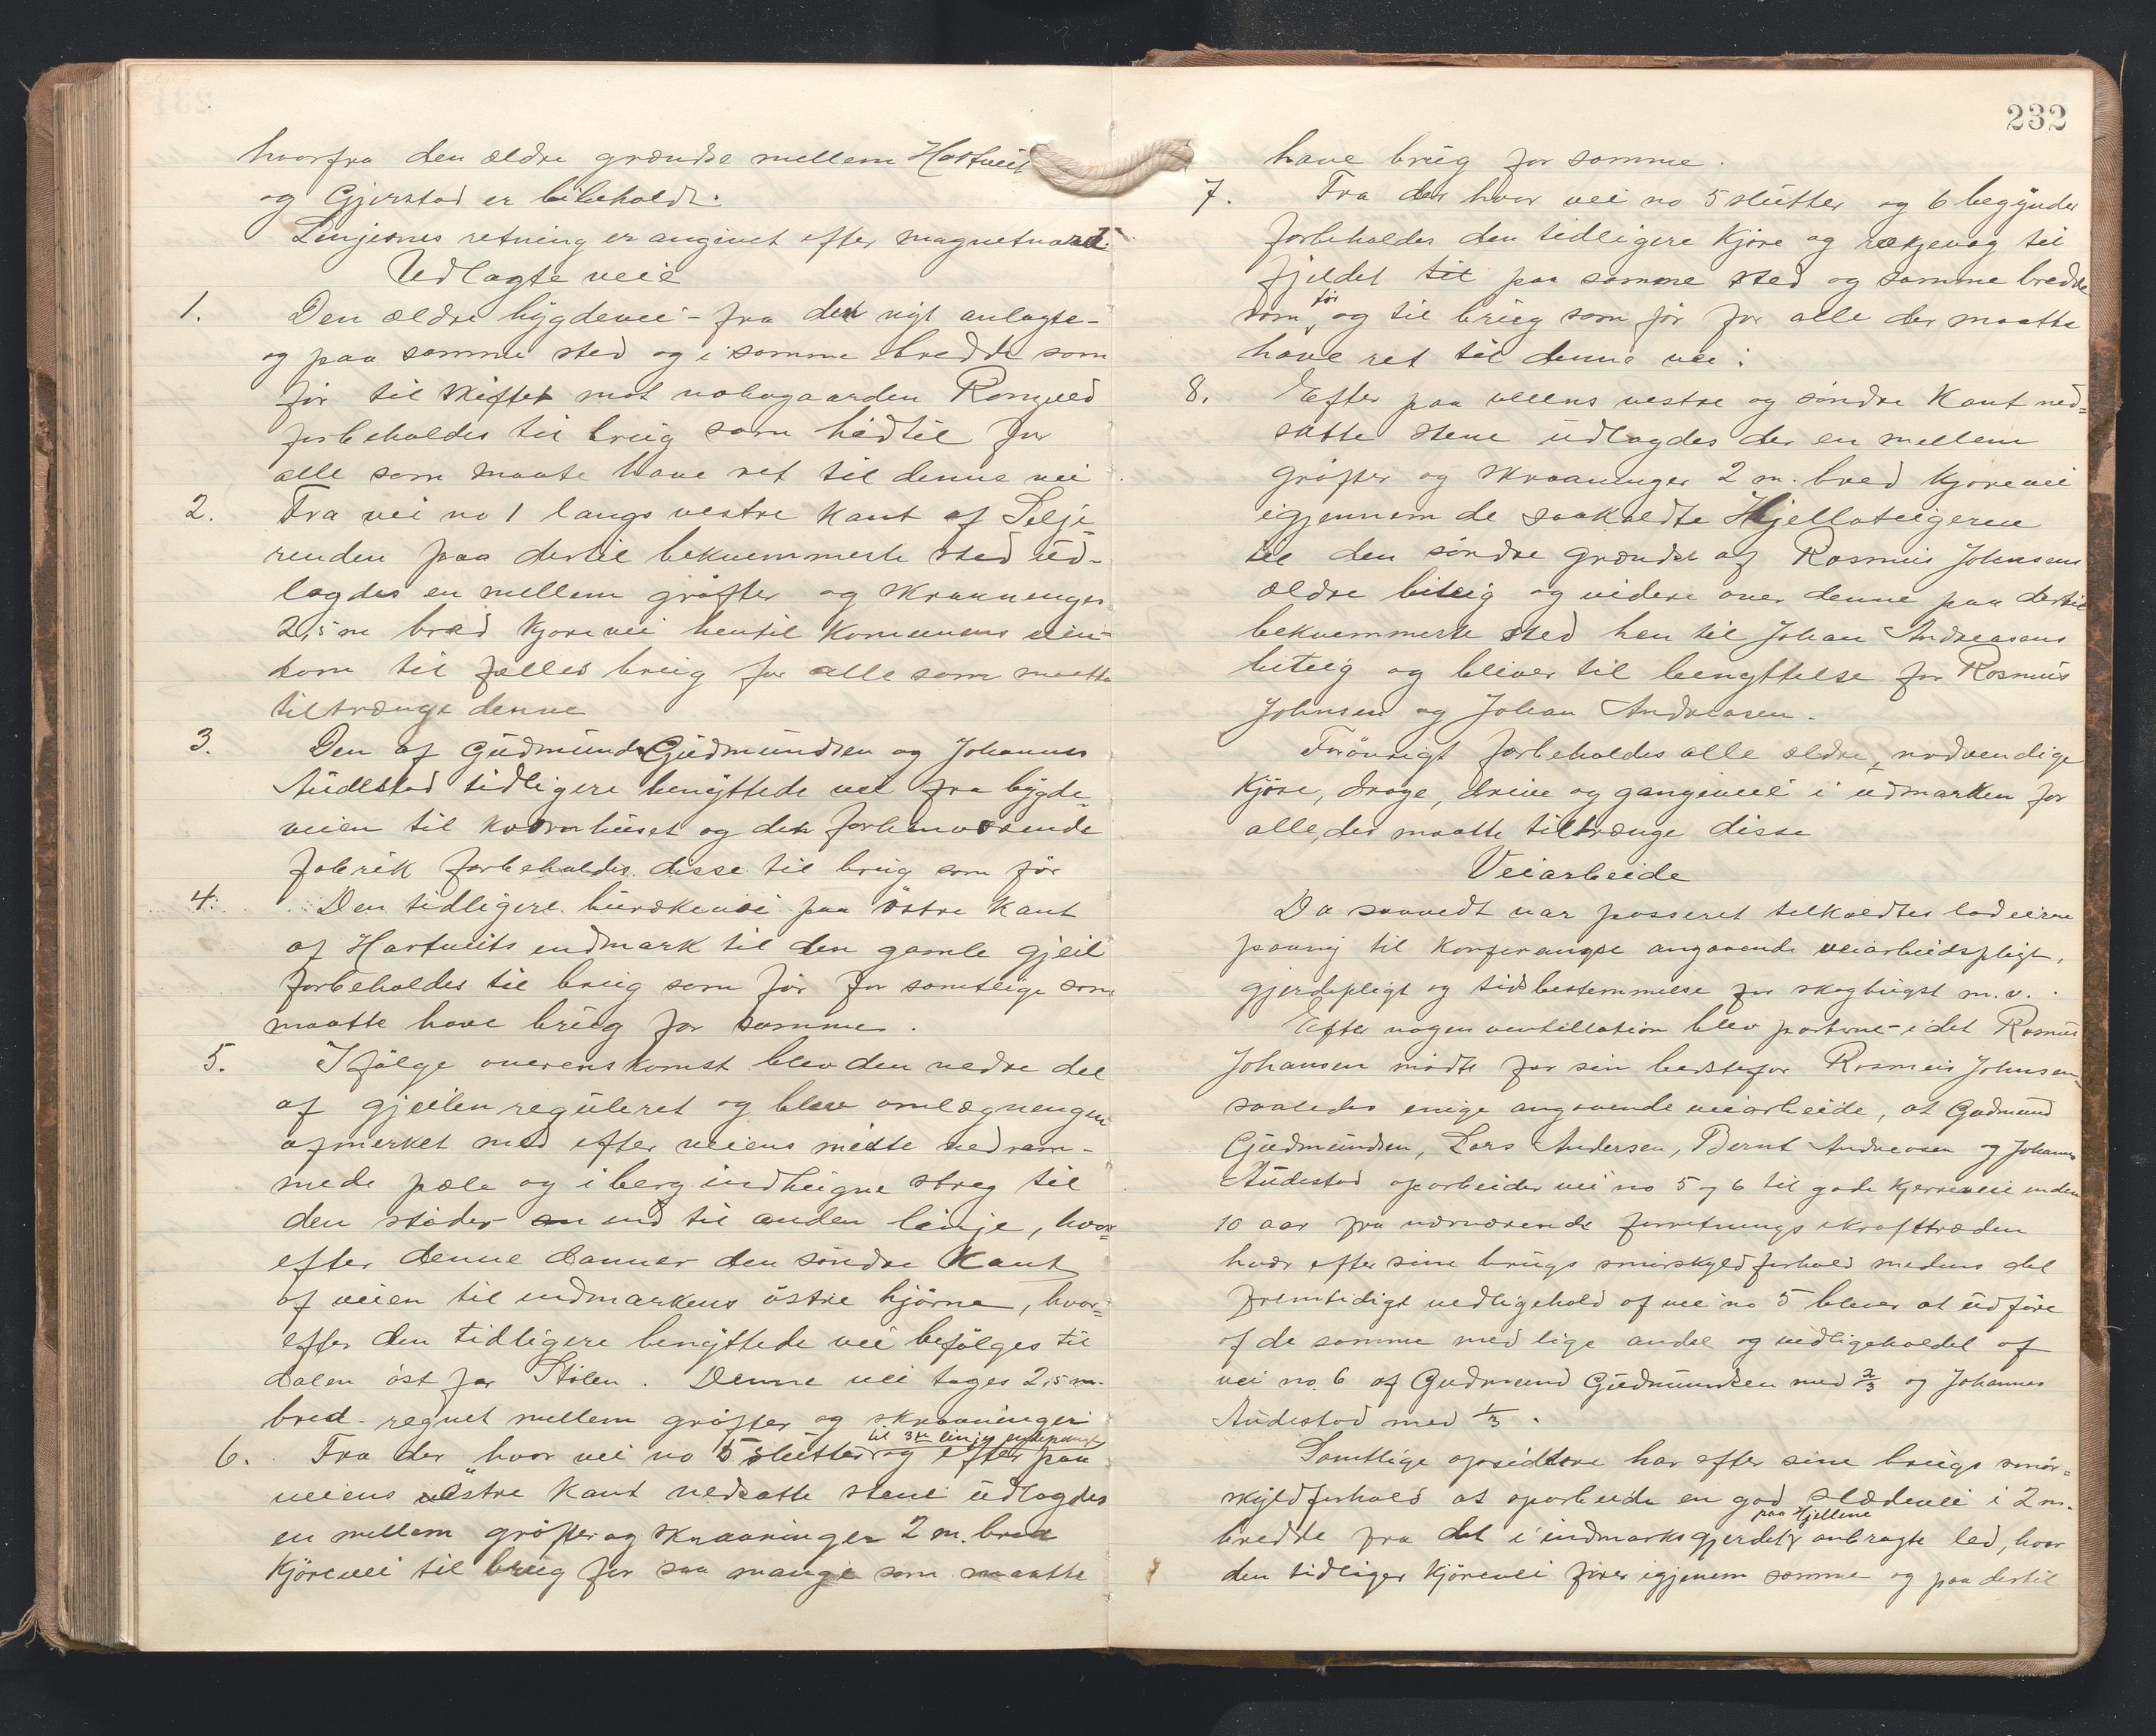 hvorfra den ældre grændse mellem Hartveit
og Gjerstad er bibeholdt.
Linjernes retning er angivet efter magnetnord.
Udlagte veie
1. Den ældre bygdevei - fra den nyt anlagte -
og paa samme sted og i samme bredde som
før til skiftet mot nabogaarden Romyed
forbeholdes til brug som hidtil for
alle som maate have ret til denne vei
2. Fra vei no 1 langs vestre kant af Selje-
renden paa dertil bekvemmeste sted ud-
lagdes en mellem grøfter og skraaninger
2,5 m bred kjørevei hentil Komunens eien-
dom til fælles brug for alle som maatte
tiltrænge denne
3. Den af Gudmund Gudmundsen og Johannes
Audestad tidligere benyttede vei fra bygde-
veien til kværnhuset og den forhenværende
fabrik forbeholdes disse til brug som før
4. Den tidligere burækevei paa østre kant
af Hartveits indmark til den gamle gjeil
forbeholdes til brug som før for samtlige som
maatte have brug for samme.
5. Ifølge overenskomst blev den nedre del
af gjeilen reguleret og blev omlægningen
afmerket med efter veiens midte nedram-
mede pæle og i berg indhugne streg til
den støder an ind til anden linje, hvor-
efter denne danner den søndre kant
af veien til indmarkens østre hjørne, hvor-
efter den tidligere benyttede vei befølges til
dalen øst for Stølen. Denne vei tages 2,5 m.
bred - regnet mellem grøfter og skraaninger
til 3die linjes endepunkt
6. Fra der hvor vei no 5 slutter og efter paa
veiens østre kant nedsatte stene udlagdes
en mellem grøfter og skraaninger 2 m. bred
kjørevei til brug for saa mange som maatte
232
have brug for samme.
7. Fra der hvor vei no 5 slutter og 6 begynder
forbeholdes den tidligere kjøre og rækjevag til
fjeldet til paa samme sted og samme bredde
som før og til brug som før for alle der maatte
have ret til denne vei.
8. Efter paa veiens vestre og søndre kant ned-
satte stene udlagdes der en mellem
grøfter og skraaninger 2 m. bred kjørevei
igjennem de saakaldte Hjellateigerne
til den søndre grændse af Rasmus Johnsens
ældre biteig og videre over denne paa dertil
bekvemmeste sted hen til Johan Andreasens
biteig og bliver til benyttelse for Rasmus
Johnsen og Johan Andreasen.
Forøvrigt forbeholdes alle ældre, nødvendige
kjøre, drage, drive og gangeveie i udmarken for
alle, der maatte tiltrænge disse
Veiarbeide
Da saavidt var passeret tilkaldtes lodeierne
paany til konferanse angaaende veiarbeidspligt,
gjerdepligt og tidsbestemmelse for skoghugst m.v.
Efter nogen ventillation blev parterne - i det Rasmus
Johansen mødte for sin bedstefar Rasmus Johnsen -
saaledes enige angaaende veiarbeide, at Gudmund
Gudmundsen, Lars Andersen, Bernt Andreasen og Johannes
Audestad oparbeider vei no 5 og 6 til gode kjerreveie inden
10 aar fra nærværende forretnings ikrafttræden
hver efter sine brugs smørskyldforhold medens det
fremtidige vedligehold af vei no 5 bliver at udføre
af de samme med lige andel og vedligeholdet af
vei no. 6 af Gudmund Gudmundsen med 2/3 og Johannes
Audestad med 1/3.
Samtlige opsiddere har efter sine brugs smør-
skyldforhold at oparbeide en god slædevei i 2 m.
bredde fra det i indmarksgjerdet paa Hjellene anbragte led, hvor
den tidliger kjørevei fører igjenem samme og paa dertil